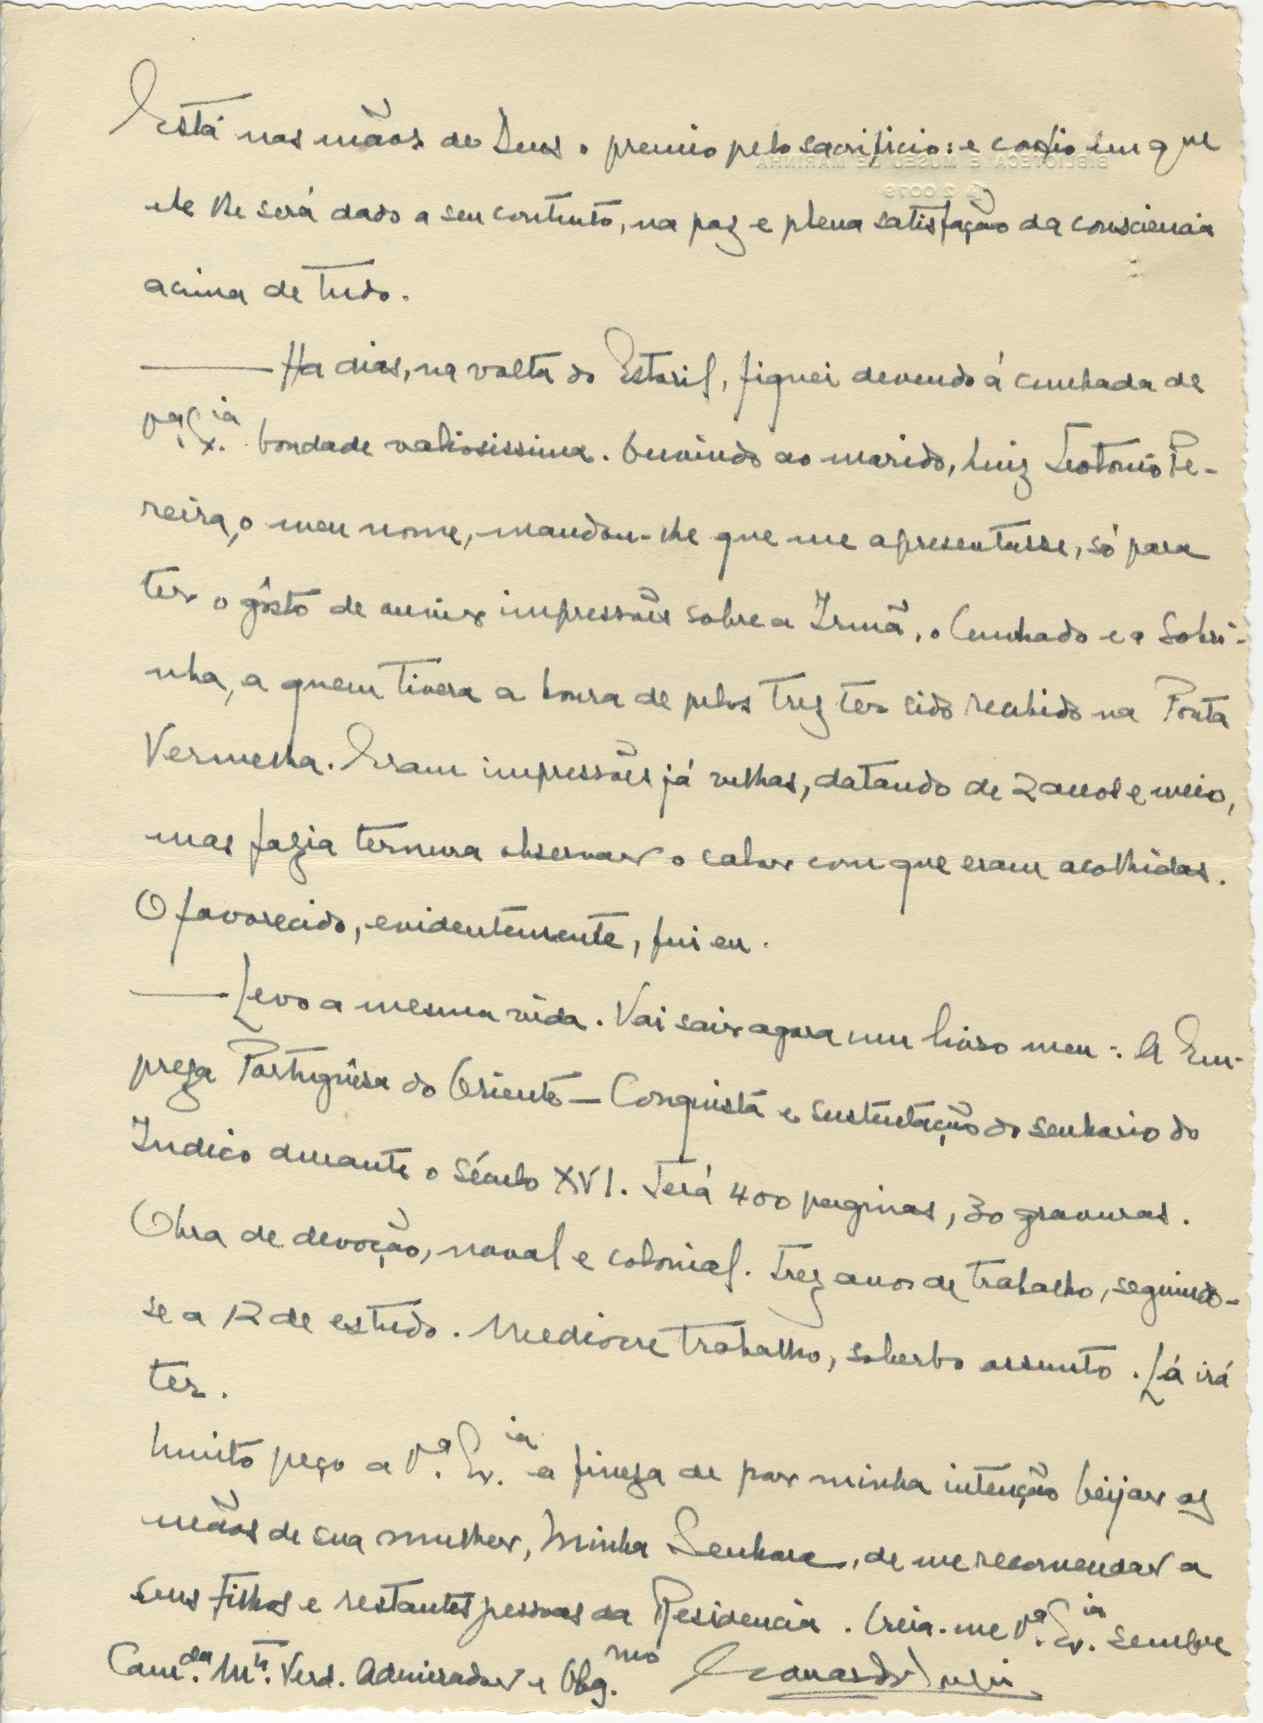 Está nas mãos de Deus o premio pelo sacrificio: e confio em que
ele lhe será dado a seu contento, na paz e plena satisfação da consciencia
acima de tudo.
—— Ha dias, na volta do Estoril, fiquei devendo á cunhada de
Vª. Ex.ia bondade valiosissima. Ouvindo ao marido, Luiz Teotonio Pe-
reira, o meu nome, mandou-lhe que me apresentasse, só para
ter o gôsto de ouvir impressões sobre a Irmã, o Cunhado e a Sobri-
nha, a quem tivera a honra de pelos trez ter sido recebido na Ponta
Vermelha. Eram impressões já velhas, datando de 2 anos e meio,
mas fazia ternura observar o calor com que eram acolhidas.
O favorecido, evidentemente, fui eu.
—— Levo a mesma vida. Vai sair agora um livro meu: A Em-
preza Portuguêsa do Oriente — Conquista e sustentação do senhorio do
Indico durante o Século XVI. Terá 400 paginas, 30 gravuras.
Obra de devoção, naval e colonial. Trez anos de trabalho, seguindo-
se a 12 de estudo. Mediocre trabalho, soberbo assunto. Lá irá
ter.
Muito peço a Vª. Ex.ia a fineza de por minha intenção beijar as
mãos de sua mulher, Minha Senhora, de me recomendar a
seus filhos e restantes pessoas da Residencia. Creia-me Vª. Ex.ia sempre
Cam.da Mto. Verd. Admirador e Obg.mo
BIBLIOTECA E MUSEU DE MARINHA